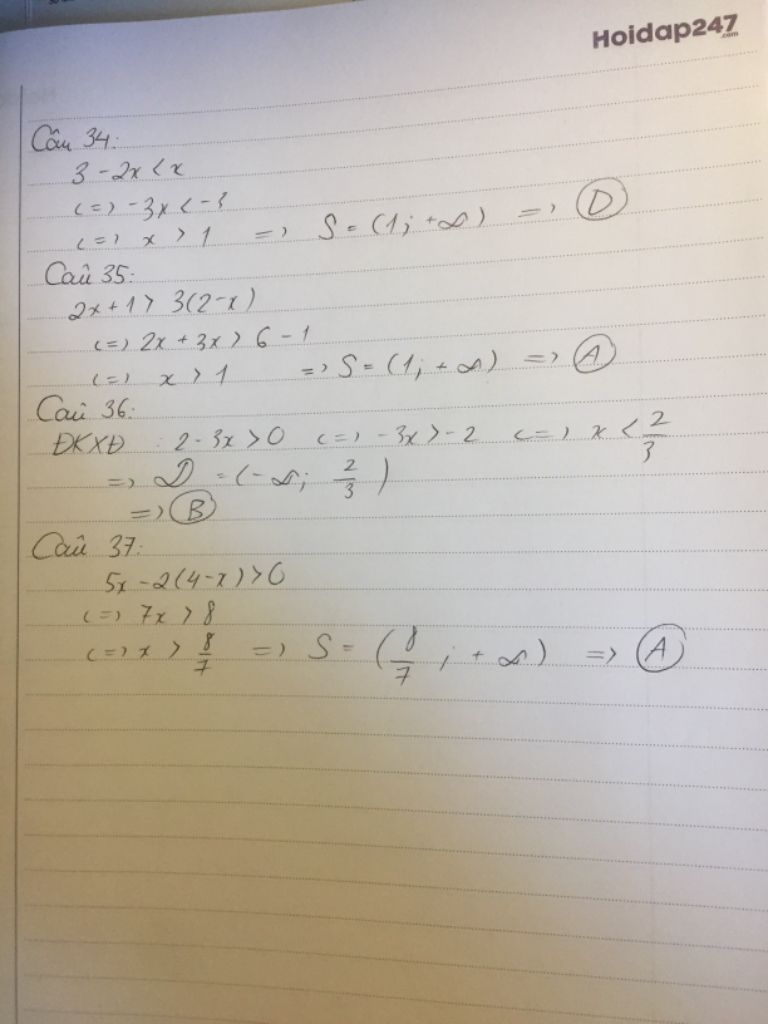 Hoidap247
.com
Câu 34:
3 - 2x < x
<=> -3x < -3
<=> x > 1 => S = (1; +∞) => D
Câu 35:
2x + 1 > 3(2-x)
<=> 2x + 3x > 6 - 1
<=> x > 1 => S = (1; +∞) => A
Câu 36:
ĐKXĐ : 2 - 3x > 0 <=> -3x > -2 <=> x < 2/3
=> D = (-∞; 2/3)
=> B
Câu 37:
5x - 2(4-x) > 0
<=> 7x > 8
<=> x > 8/7 => S = (8/7; +∞) => A